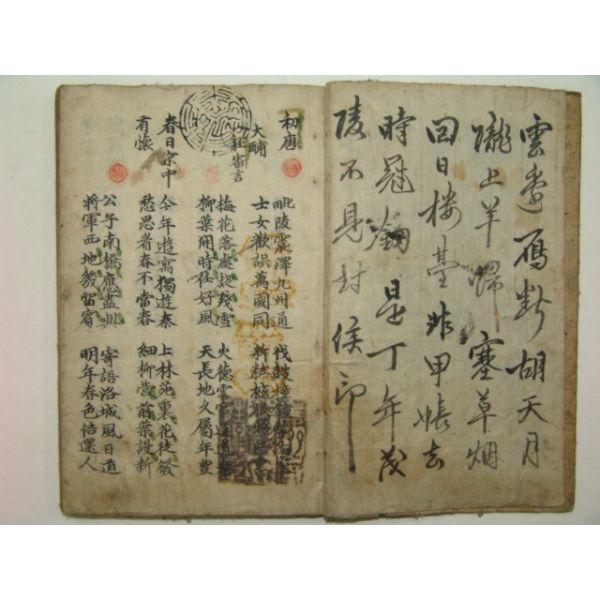 雲邊鴈断胡天月
隴上羊歸塞草烟
回日楼臺非甲帳去
時冠釰是丁年茂
陵不見封侯印
初唐
大酺
杜審言
毗陵震澤九州通 伐鼓撞鐘驚海上
士女歡誤萬國同 新粧袨服照江東
梅花落處疑殘雪 火德雲官逢道泰
柳葉開時任好風 天長地久屬年豊
春日京中
有懷
今年遊寓獨遊秦 上林苑裏花徒發
愁思看春不當春 細柳營前葉謾新
公子南橋應盡興 寄語洛城風日道
將軍西地幾留賓 明年春色倍還人